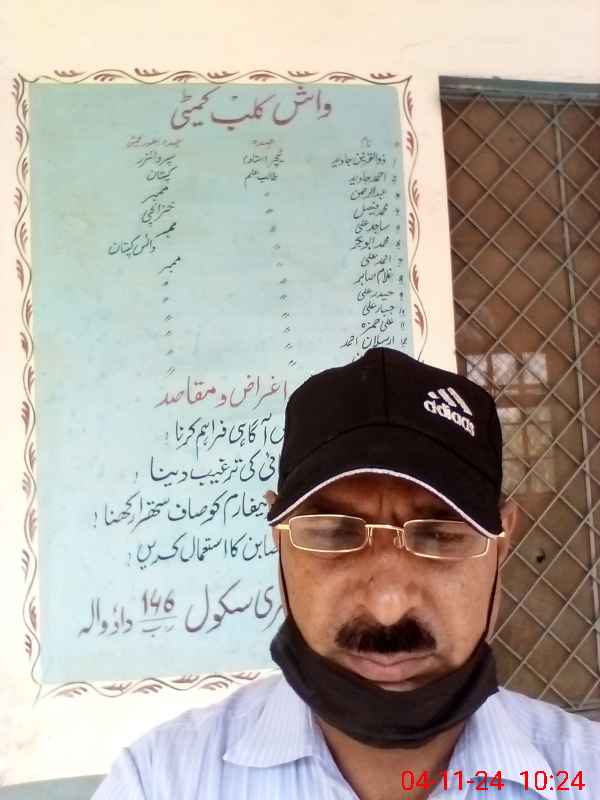 واش کلب کمیٹی
نام عہدہ عہدہ
۱ ذوالقرنین جاوید ٹیچر استاد سپروائزر
۲ احمد جاوید طالب علم کپتان
۳ عبدالرحمن 〃 ممبر
۴ محمد فیصل 〃 خزانچی
۵ ساجد علی 〃 ممبر
۶ محمد ابوبکر 〃 وائس کپتان
۷ احمد علی 〃 ممبر
۸ غلام صابر 〃 〃
۹ حیدر علی 〃 〃
۱۰ جبار علی 〃 〃
۱۱ علی حمزہ 〃 〃
۱۲ ارسلان احمد 〃 〃
〃 〃
اغراض و مقاصد
آگاہی فراہم کرنا!
کی ترغیب دینا!
یونیفارم کو صاف ستھرا رکھنا!
صابن کا استعمال کریں!
سکول 146 رب داؤوالہ
adidas
04-11-24 10:24